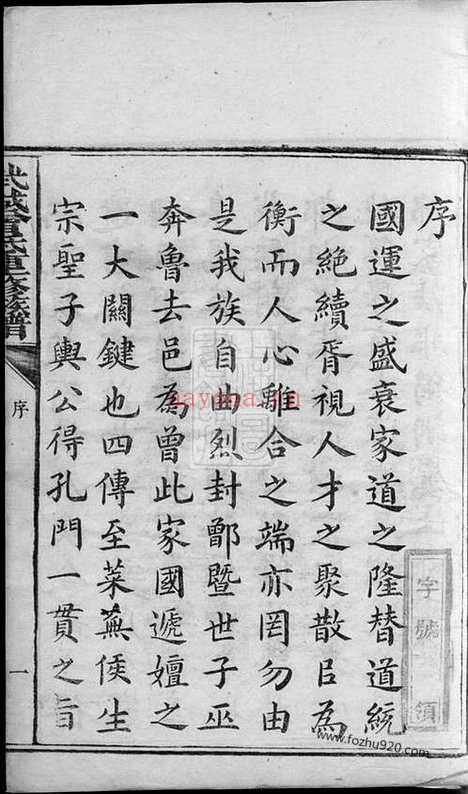 序
國運之盛衰家道之隆替道統
之絶續胥視人才之聚散㠯為
衡而人心離合之端亦罔勿由
是我族自曲烈封鄫暨世子巫
奔魯去邑為曾此家國遞嬗之
一大關鍵也四傳至萊蕪侯生
宗聖子輿公得孔門一貫之旨
武城曾氏重修族譜
序
一
字號
領
nayona.cn
www.fozhu920.com